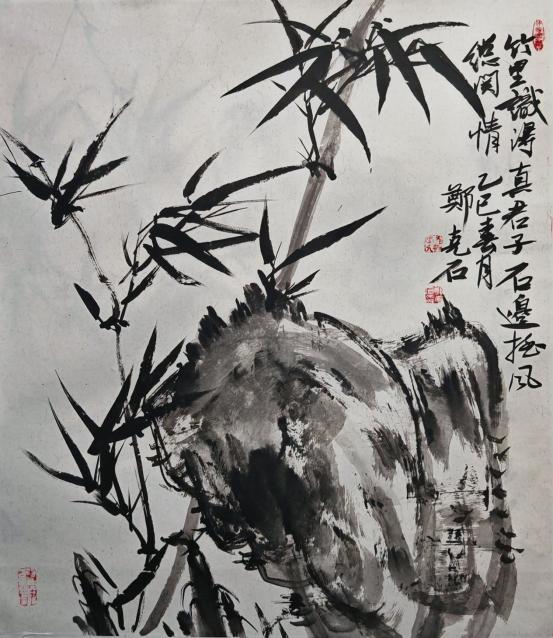 竹里識得真君子石邊摇風
總関情
乙巳春月
鄭克石